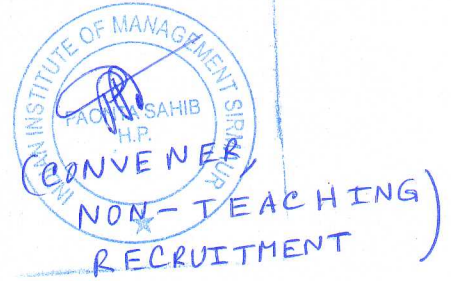 INDIAN INSTITUTE OF MANAGEMENT SIRMAUR
PAONTA SAHIB
H.P.
(CONVENER,
NON-TEACHING
RECRUITMENT)